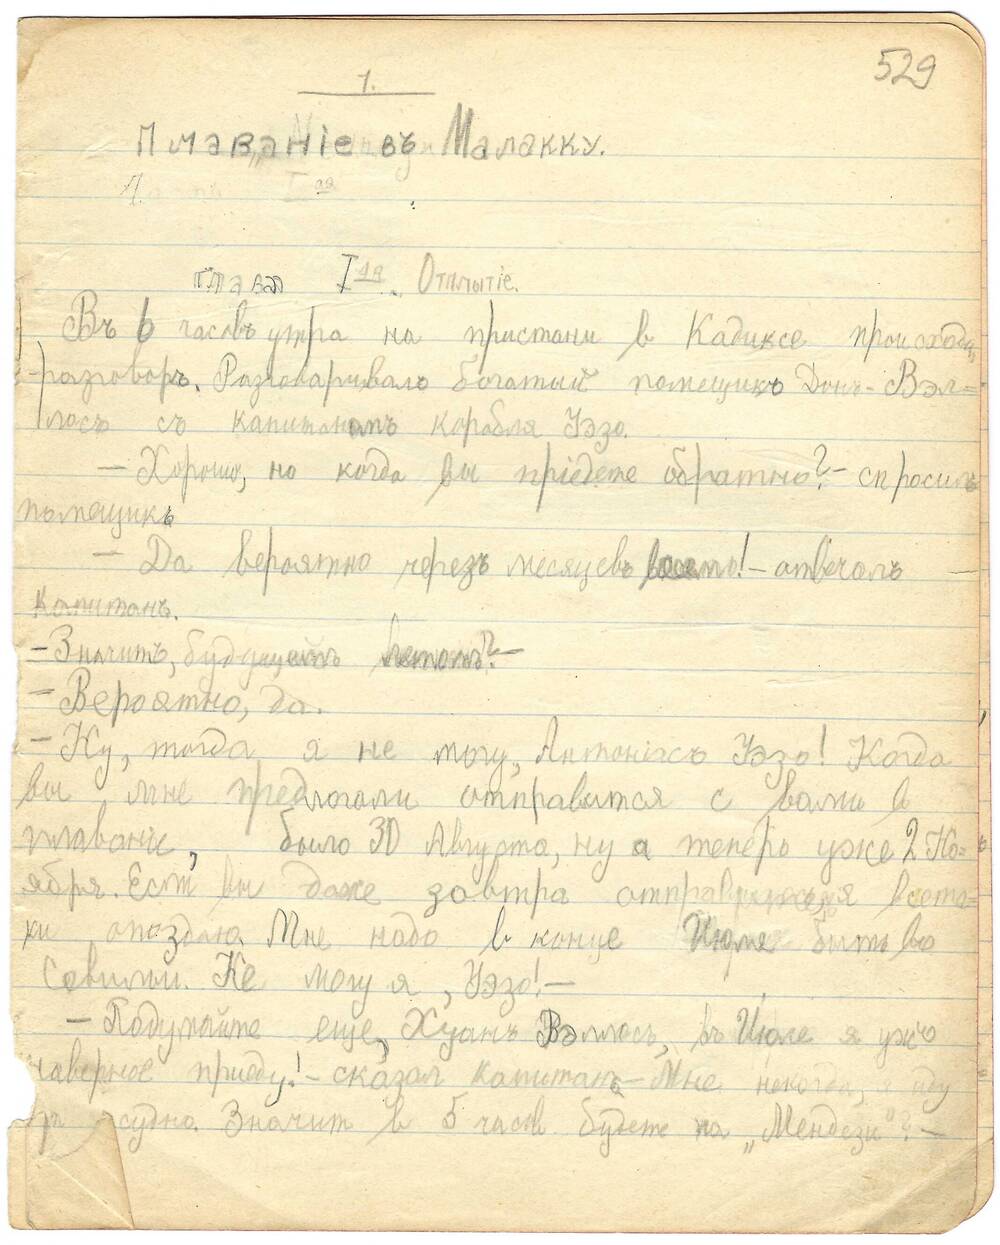 529
1.
Плаваніе въ Малакку.
I ая
глава I ая. Отплытіе.
Въ 6 часовъ утра на пристани в Кадиксе происходи,
разговоръ. Разговаривалъ богатый помещикъ Донъ-Вэл=
лосъ съ капитаномъ корабля Уэзо.
— Хорошо, но когда вы пріедете обратно? — спросилъ
помещикъ
— Да вероятно черезъ месяцевъ восемь! — отвечалъ
капитанъ.
— Значитъ, будущемъ летомъ? —
— Вероятно, да.
— Ну, тогда я не могу, Антоніосъ Уэзо! Когда
вы мне предлогали отправится с вами в
плаваніе, было 30 Августа, ну а теперь уже 2 Но=
ября. Если вы даже завтра отправитесь я всета=
ки опоздаю. Мне надо в конце Июля быть во
Севильи. Не могу я, Уэзо! —
— Подумайте еще, Хуанъ Вэллосъ, въ Июле я ужо
наверное приеду! — сказал капитанъ — Мне некогда, я иду
на судно. Значит в 5 часов будете на „Мендези“? —